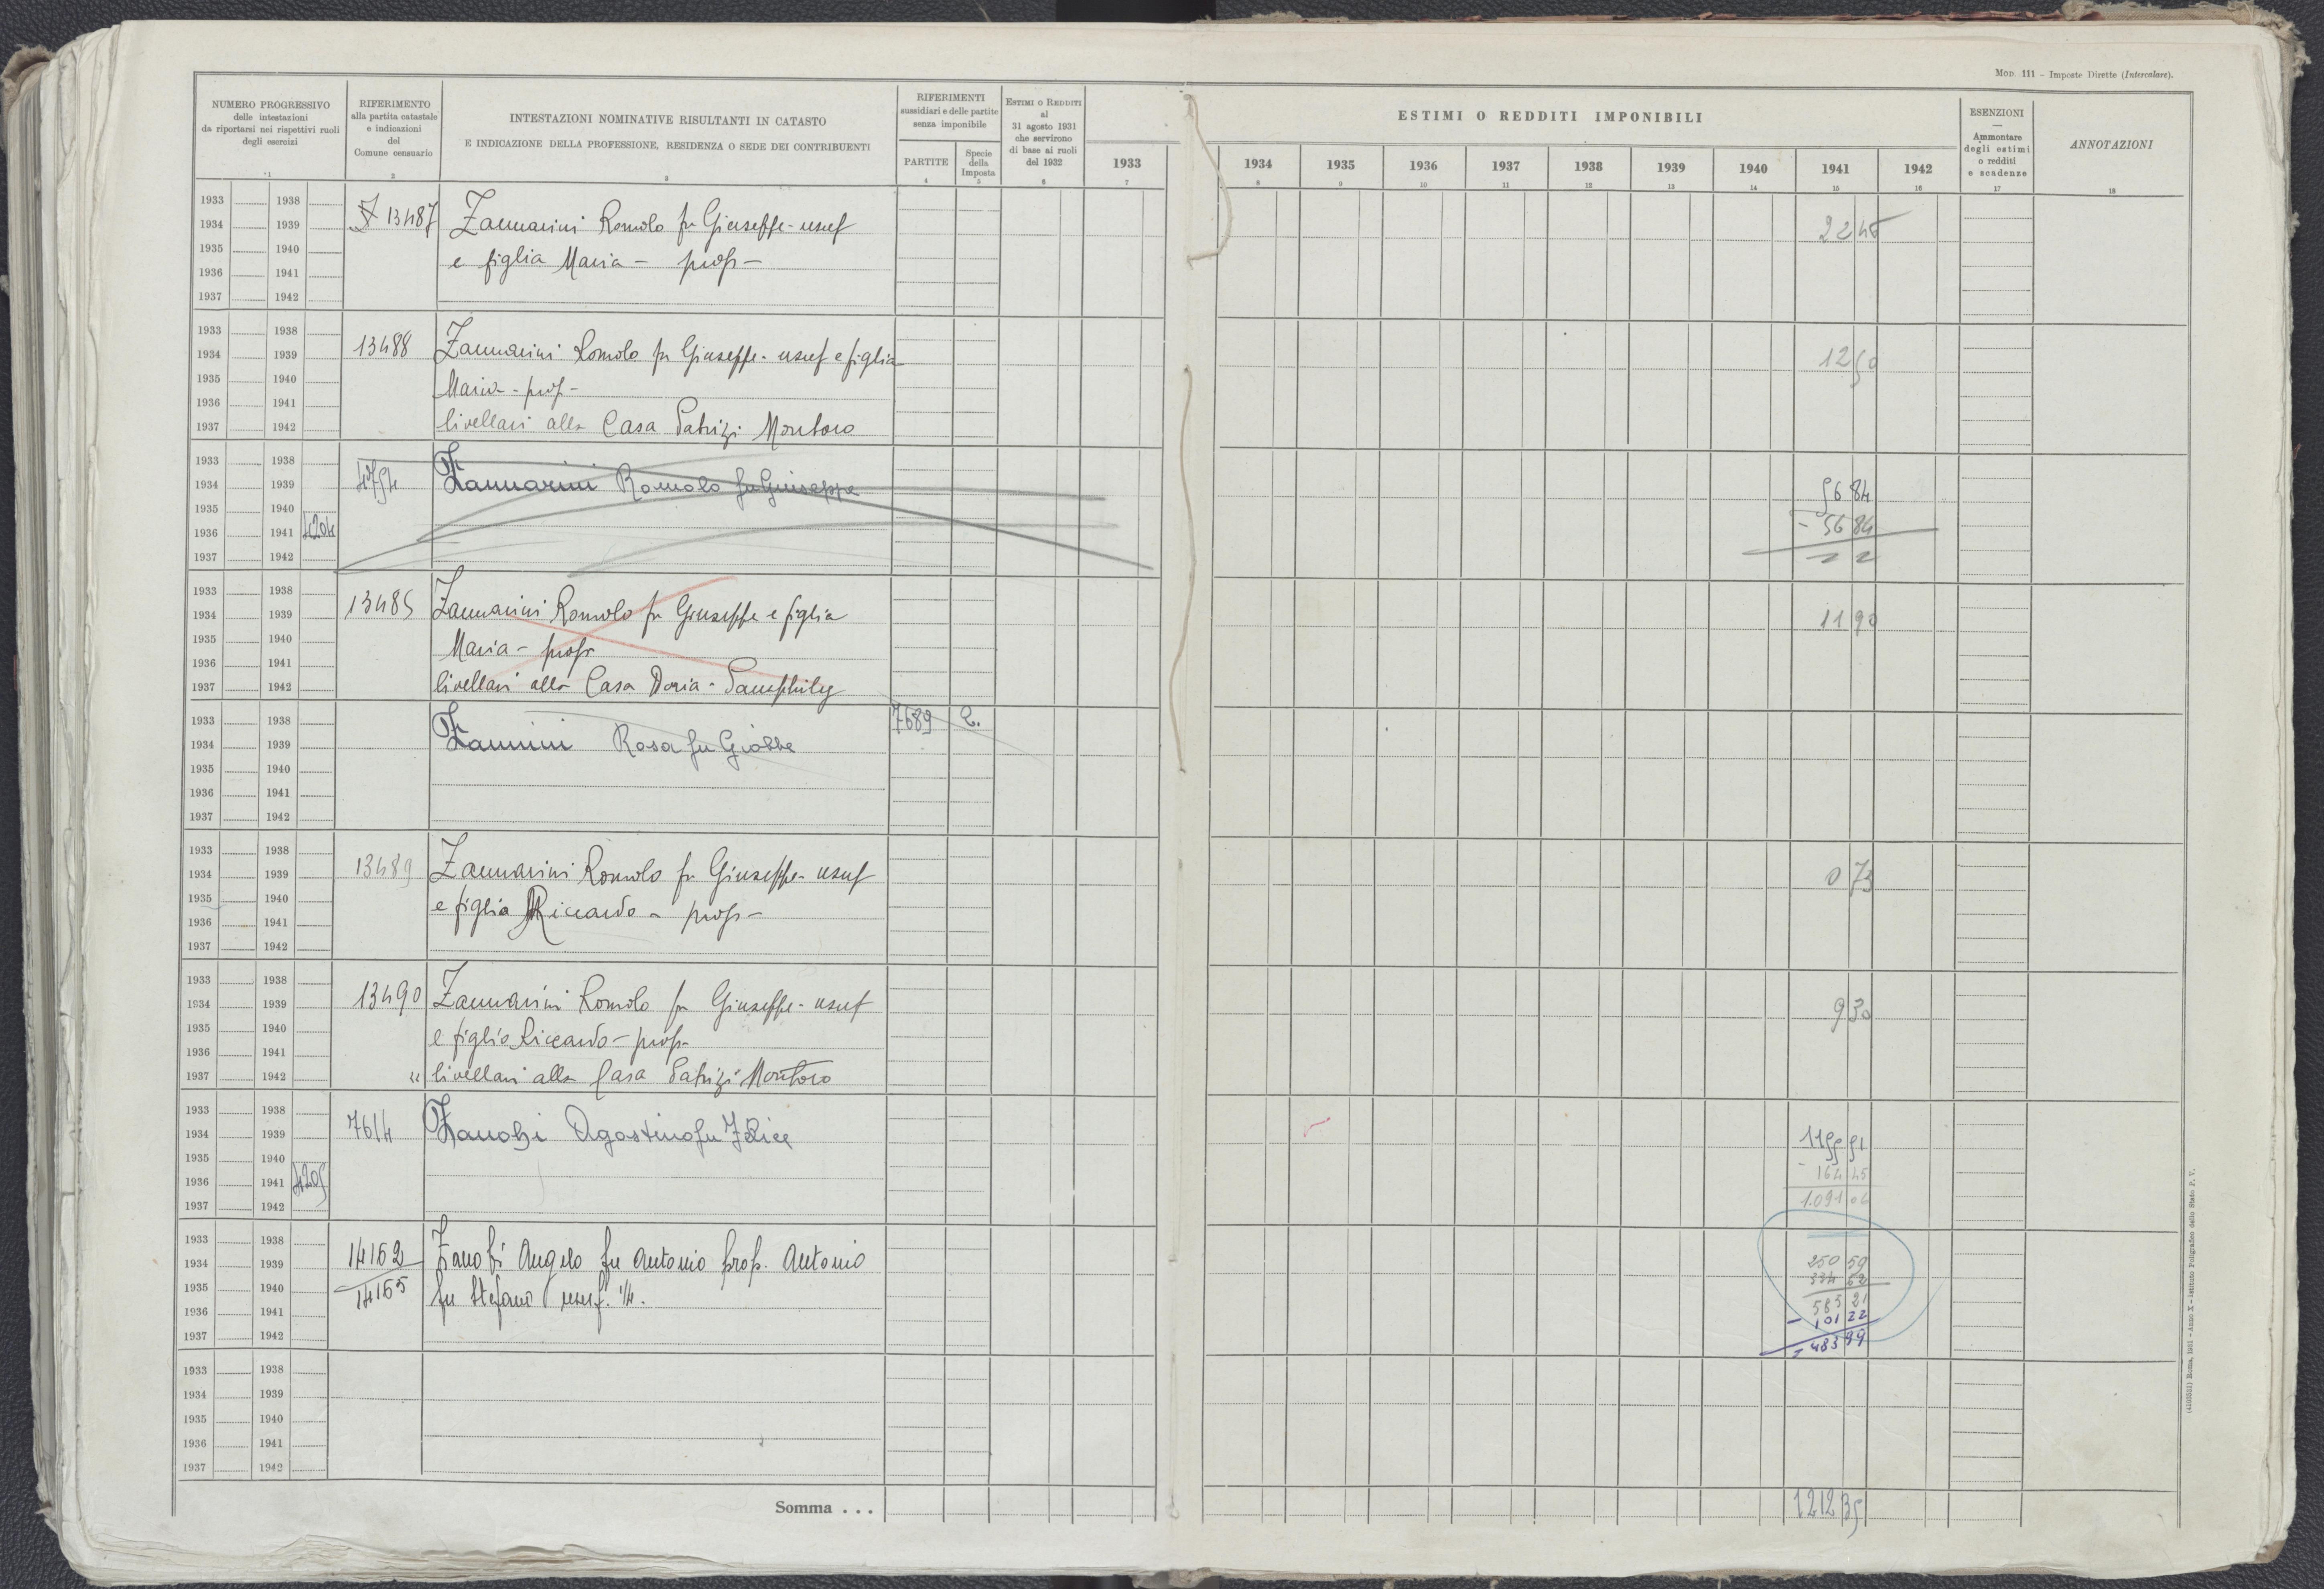 Mod. 111 - Imposte Dirette (Intercalare).
NUMERO PROGRESSIVO
delle intestazioni
da riportarsi nei rispettivi ruoli
degli esercizi
RIFERIMENTO
alla partita catastale
e indicazioni
del
Comune censuario
INTESTAZIONI NOMINATIVE RISULTANTI IN CATASTO
E INDICAZIONE DELLA PROFESSIONE, RESIDENZA O SEDE DEI CONTRIBUENTI
RIFERIMENTI
sussidiari e delle partite
senza imponibile
PARTITE
Specie
della
Imposta
ESTIMI O REDDITI
al
31 agosto 1931
che servirono
di base ai ruoli
del 1932
ESTIMI O REDDITI IMPONIBILI
1933 1934 1935 1936 1937 1938 1939 1940 1941 1942
ESENZIONI
—
Ammontare
degli estimi
o redditi
e scadenze
ANNOTAZIONI
1 2 3 4 5 6 7 8 9 10 11 12 13 14 15 16 17 18
1933 1938
1934 1939 13487 Zannarini Romolo fu Giuseppe - usuf 22 45
1935 1940 e figlia Maria - propr -
1936 1941
1937 1942
1933 1938
1934 1939 13488 Zannarini Romolo fu Giuseppe - usuf e figlia 12 50
1935 1940 Maria - prop -
1936 1941
1937 1942 livellari alla Casa Patrizi Montoro
1933 1938
1934 1939 4754 Zannarini Romolo fu Giuseppe 56 84
1935 1940
1936 1941 4204 - 56 84
1937 1942
1933 1938
1934 1939 13485 Zannarini Romolo fu Giuseppe e figlia 11 90
1935 1940 Maria - propr
1936 1941
1937 1942 livellari alla Casa Doria - Pamphily
1933 1938 7689 2.
1934 1939 Zannini Rosa fu Giobbe
1935 1940
1936 1941
1937 1942
1933 1938
1934 1939 13489 Zannarini Romolo fu Giuseppe - usuf 0 73
1935 1940 e figlia Riccardo - propr -
1936 1941
1937 1942
1933 1938
1934 1939 13490 Zannarini Romolo fu Giuseppe - usuf 9 30
1935 1940 e figlio Riccardo - propr -
1936 1941
1937 1942 " livellari alla Casa Patrizi Montoro
1933 1938
1934 1939 7614 Zanobi Agostino fu Felice 1155 51
1935 1940
1936 1941 4205 - 164 45
1937 1942 1.091 06
1933 1938
1934 1939 14162 Zanobi Angelo fu Antonio prop. Antonio 250 59
1935 1940 14165 fu Stefano usuf. 1/4. 334 62
1936 1941 585 21
- 101 22
1937 1942 483 99
1933 1938
1934 1939
1935 1940
1936 1941
1937 1942
Somma . . . 1212 35
(4100531) Roma, 1931 - Anno X - Istituto Poligrafico dello Stato P. V.